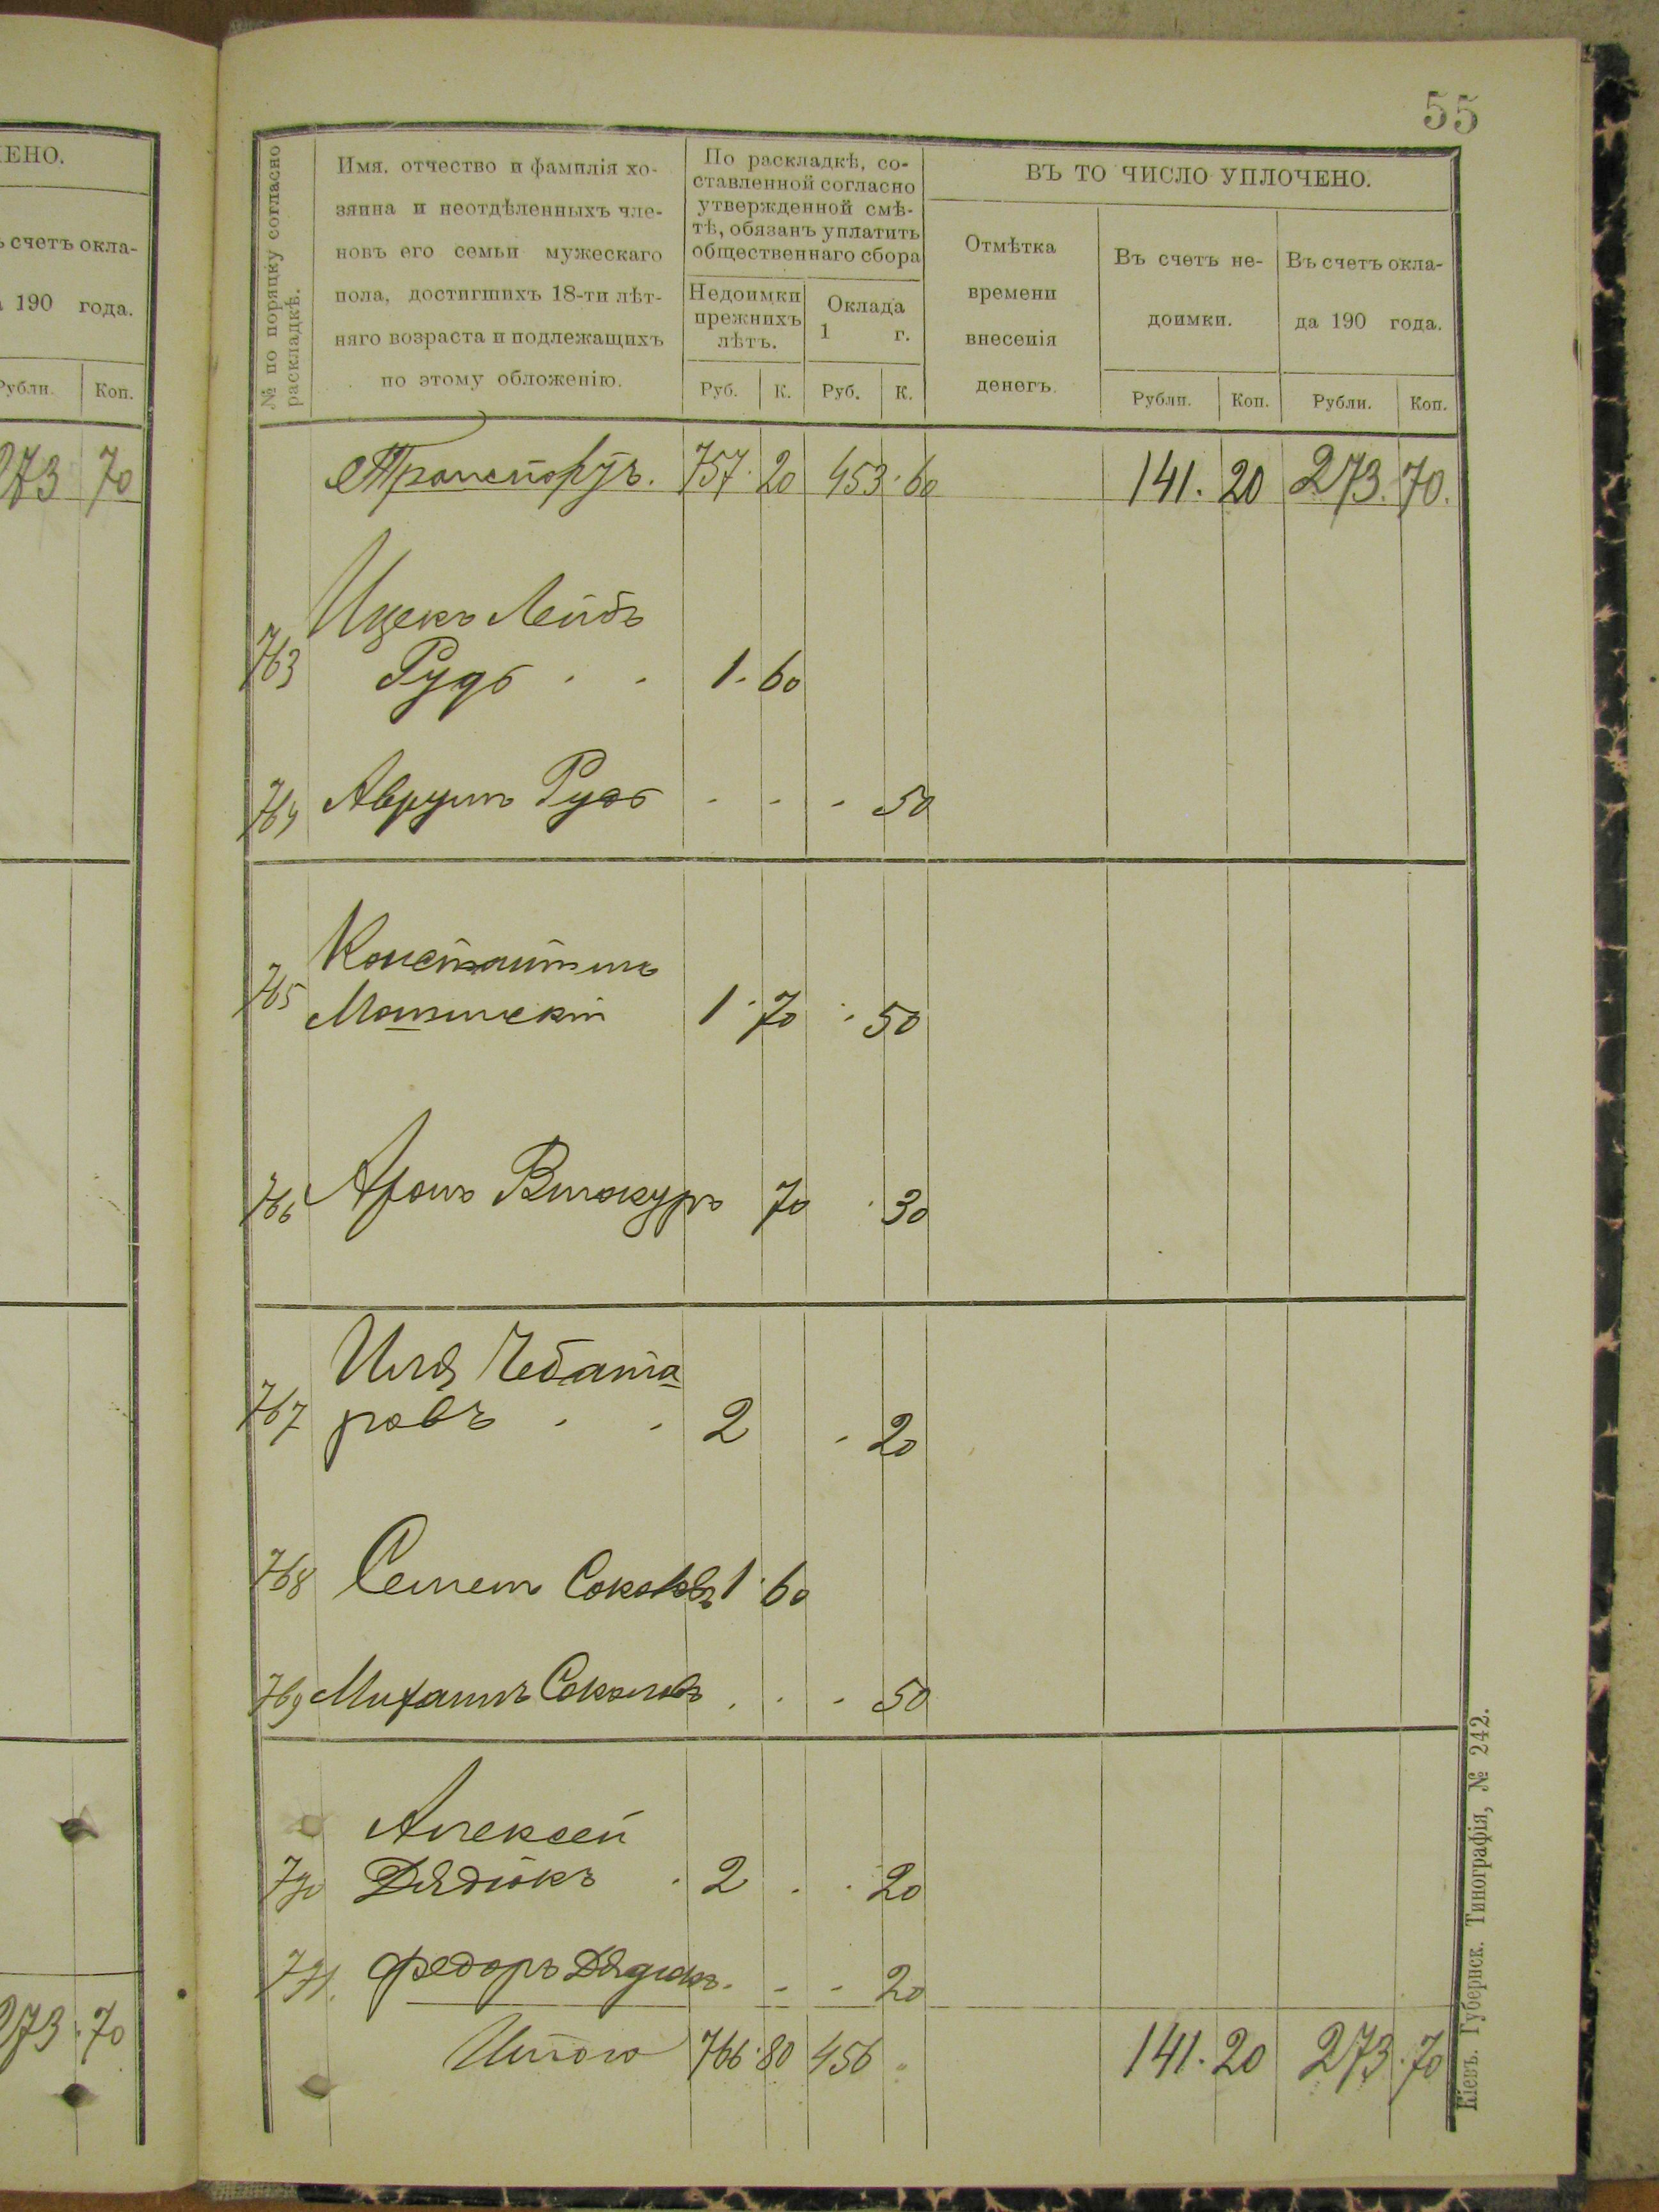 ЧЕНО.
ъ счетъ окла-
а 190 года.
Рубли. Коп.
273 70
273 . 70
55
№ по порядку согласно
раскладкѣ.
Имя. отчество и фамилія хо-
зяина и неотдѣленныхъ чле-
новъ его семьи мужескаго
пола, достигшихъ 18-ти лѣт-
няго возраста и подлежащихъ
по этому обложенію.
По раскладкѣ, со-
ставленной согласно
утвержденной смѣ-
тѣ, обязанъ уплатить
общественнаго сбора
Недоимки
прежнихъ
лѣтъ.
Руб. К.
Оклада
1 г.
Руб. К.
ВЪ ТО ЧИСЛО УПЛОЧЕНО.
Отмѣтка
времени
внесенія
денегъ.
Въ счетъ не-
доимки.
Рубли. Коп.
Въ счетъ окла-
да 190 года.
Рубли. Коп.
Транспортъ. 757. 20 453. 60 141. 20 273. 70.
Ицекъ Лейбъ
763 Рудь . . 1. 60
764 Аврумъ Рудь - - - 50
Константинъ
765 1. 70 . 50
766 Аронъ Винокуръ 70 . 30
Илія Чебата
767 ровъ . . 2 - 20
768 Семенъ Соколовъ 1. 60
769 Михаилъ Соколовъ . . - 50
Алексей
770 Дядюкъ . 2 . . 20
771. Федоръ Дядюкъ. - - 20
Итого 766. 80 456 141. 20 273. 70
Кіевъ. Губернск. Типографія, № 242.